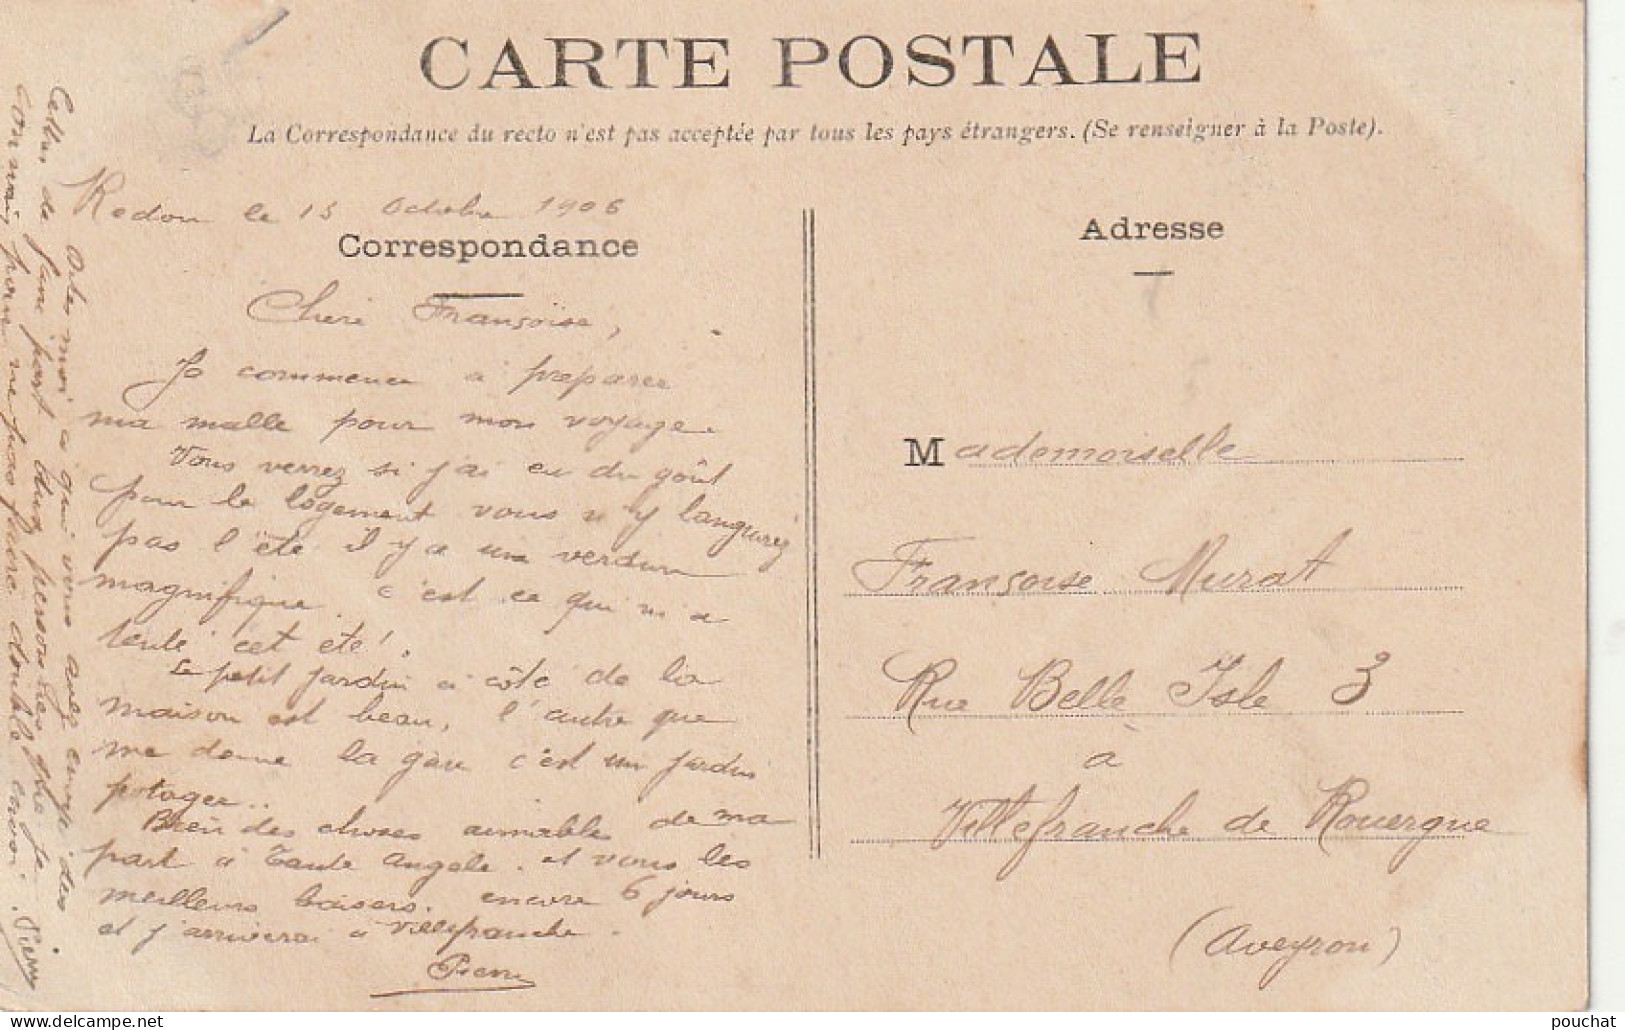 CARTE POSTALE
La Correspondance du recto n'est pas acceptée par tous les pays étrangers. (Se renseigner à la Poste).
Redon le 15 Octobre 1906
Correspondance
Chère Françoise,
Je commence a preparer
ma malle pour mon voyage.
Vous verrez si j'ai eu du goût
pour le logement vous n'y languirez
pas l'été il y a une verdure
magnifique. c'est ce qui m'a
tenté cet été!.
Le petit jardin a côté de la
maison est beau, l'autre que
me donne la gare c'est un jardin
potager..
Bien des choses aimables de ma
part à Tante Angèle. et vous les
meilleurs baisers. encore 6 jours
et j'arriverai à Villefranche.
Pierre
Dites moi a qui vous avez envoyé des
Cartes de Jane part leur personnes que je
Connais, pour ne pas faire double envoi. Pierre
Adresse
Mademoiselle
Françoise Murat
Rue Belle Isle 3
à
Villefranche de Rouergue
(Aveyron)
pouchat